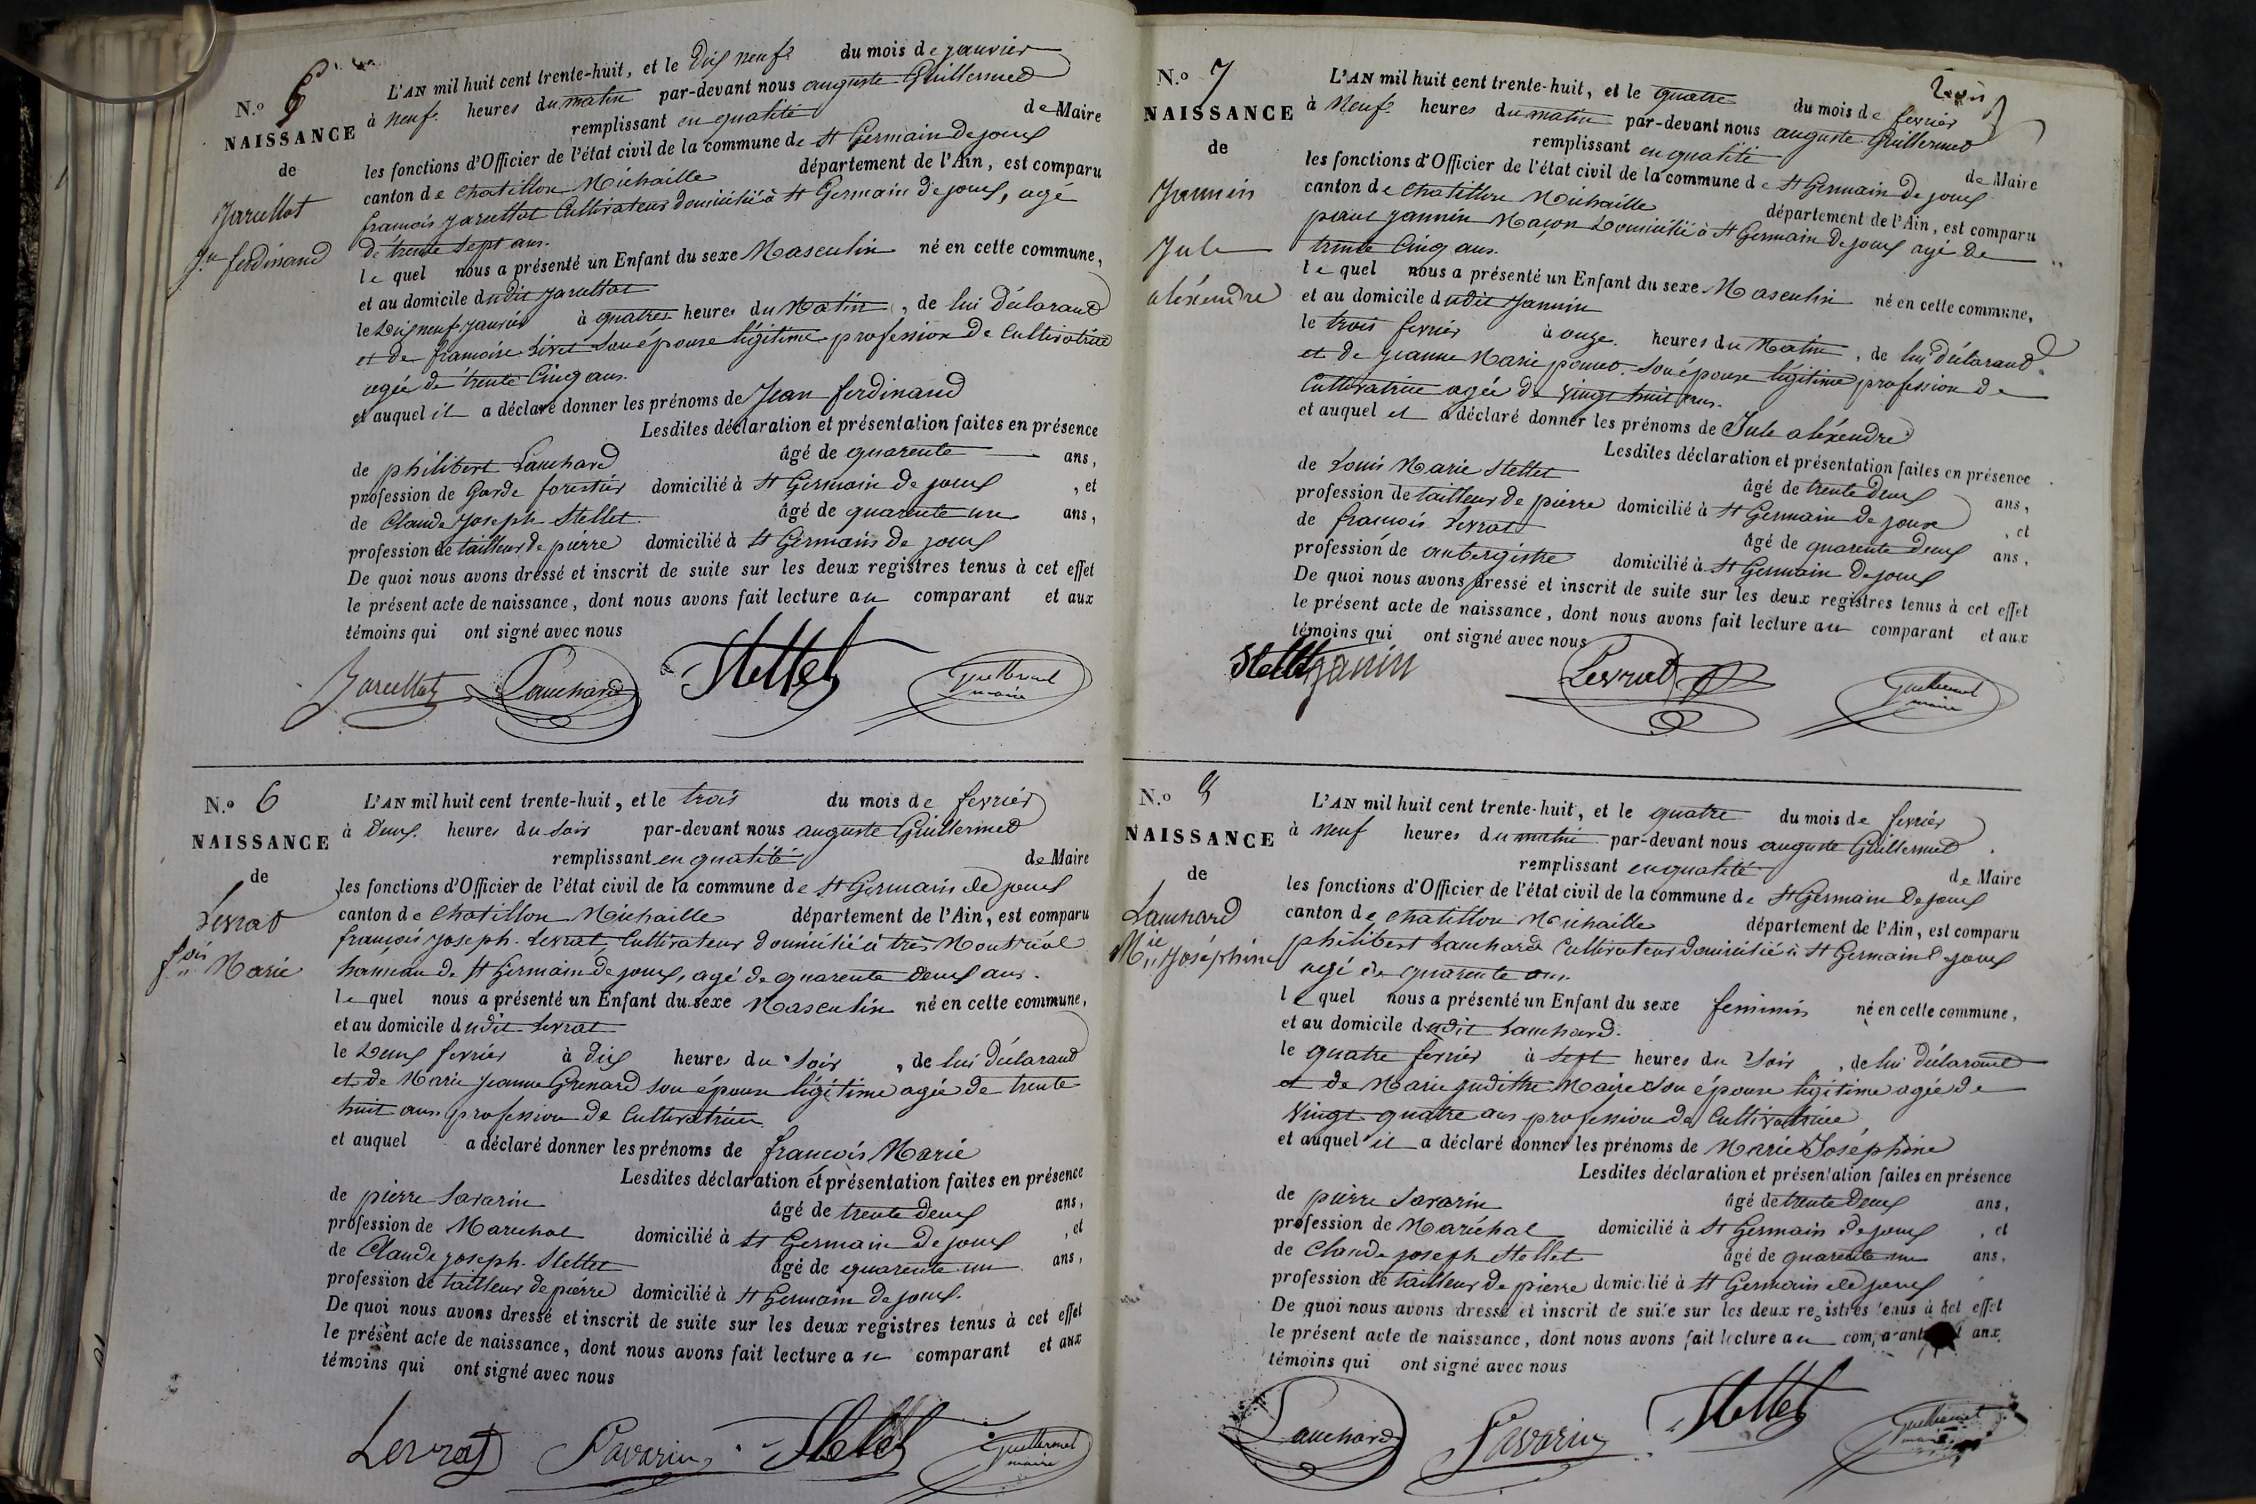 N.o 6
NAISSANCE
de
Jarullot
J.n ferdinand
L'AN mil huit cent trente-huit, et le Dix neuf du mois de janvier
à neuf heures du matin par-devant nous auguste Guillermet
remplissant en qualité de Maire
les fonctions d'Officier de l'état civil de la commune de St Germain de joux
canton de Chatillon Michaille département de l'Ain, est comparu
francois Jarullot Cultivateur domicilié à St Germain de joux, agé
de trente sept ans.
le quel nous a présenté un Enfant du sexe Masculin né en cette commune,
et au domicile dudit Jarullot
le Dix neuf janvier à quatres heures du Matin, de lui déclarand
et de francoise Livet son épouse légitime profession de Cultivatrice
agée de trente Cinq ans.
et auquel il a déclaré donner les prénoms de Jean ferdinand
Lesdites déclaration et présentation faites en présence
de philibert Lauchard âgé de quarente ans,
profession de Garde forestier domicilié à St Germain de joux, et
de Claude Joseph Stellet âgé de quarente un ans,
profession de tailleur de pierre domicilié à St Germain de joux
De quoi nous avons dressé et inscrit de suite sur les deux registres tenus à cet effet
le présent acte de naissance, dont nous avons fait lecture au comparant et aux
témoins qui ont signé avec nous
Jarullot Lauchard Stellet Guillermet
maire
N.o 6
NAISSANCE
de
Levrat
f.ois Marie
L'AN mil huit cent trente-huit, et le trois du mois de fevrier
à Deux heures du Soir par-devant nous auguste Guillermet
remplissant en qualité de Maire
les fonctions d'Officier de l'état civil de la commune de St Germain de joux
canton de Chatillon Michaille département de l'Ain, est comparu
francois joseph Levrat Cultivateur domicilié à très Montréal
hameau de St Germain de joux, agé de quarente deux ans.
le quel nous a présenté un Enfant du sexe Masculin né en cette commune,
et au domicile dudit Levrat
le Deux fevrier à dix heures du Soir, de lui déclarand
et de Marie Jeanne Grenard son épouse légitime agée de trente
huit ans profession de Cultivatrice
et auquel a déclaré donner les prénoms de francois Marie
Lesdites déclaration et présentation faites en présence
de pierre Savarin âgé de trente deux ans,
profession de Marechal domicilié à St Germain de joux, et
de Claude joseph Stellet âgé de quarente un ans,
profession de tailleur de pierre domicilié à St Germain de joux.
De quoi nous avons dressé et inscrit de suite sur les deux registres tenus à cet effet
le présent acte de naissance, dont nous avons fait lecture au comparant et aux
témoins qui ont signé avec nous
Levrat Savarin Stellet Guillermet
maire
trois
N.o 7
NAISSANCE
de
Jannin
Jule
aléxendre
L'AN mil huit cent trente-huit, et le quatre du mois de fevrier
à Neuf heures du matin par-devant nous auguste Guillermet
remplissant en qualité de Maire
les fonctions d'Officier de l'état civil de la commune de St Germain de joux
canton de Chatillon Michaille département de l'Ain, est comparu
paul Jannin Maçon Domicilié à St Germain de joux agé de
trente Cinq ans.
le quel nous a présenté un Enfant du sexe Masculin né en cette commune,
et au domicile dudit Jannin
le trois fevrier à onze heures du Matin, de lui déclarand
et de Jeanne Marie poncet son épouse légitime profession de
Cultivatrice agée de vingt huit ans.
et auquel il a déclaré donner les prénoms de Jule aléxendre
Lesdites déclaration et présentation faites en présence
de Louis Marie Stellet âgé de trente Deux ans,
profession de tailleur de pierre domicilié à St Germain de joux, et
de francois Levrat âgé de quarente Deux ans,
profession de aubergistre domicilié à St Germain de joux
De quoi nous avons dressé et inscrit de suite sur les deux registres tenus à cet effet
le présent acte de naissance, dont nous avons fait lecture au comparant et aux
témoins qui ont signé avec nous
Stellet Janin Levrat Guillermet
maire
N.o 8
NAISSANCE
de
Lauchard
M.ie Joséphine
L'AN mil huit cent trente-huit, et le quatre du mois de fevrier
à Neuf heures du matin par-devant nous auguste Guillermet
remplissant en qualité de Maire
les fonctions d'Officier de l'état civil de la commune de St Germain de joux
canton de Chatillon Michaille département de l'Ain, est comparu
philibert Lauchard Cultivateur domicilié à St Germain de joux
agé de quarente ans.
le quel nous a présenté un Enfant du sexe feminin né en cette commune,
et au domicile dudit Lauchard.
le quatre fevrier à sept heures du Soir, de lui déclarand
et de Marie judithe Maire Son épouse légitime agée de
Vingt quatre ans profession de Cultivatrice
et auquel il a déclaré donner les prénoms de Marie Joséphine
Lesdites déclaration et présentation faites en présence
de pierre Savarin âgé de trente Deux ans,
profession de Maréchal domicilié à St Germain de joux, et
de Claude joseph Stellet âgé de quarente un ans,
profession de tailleur de pierre domicilié à St Germain de joux
De quoi nous avons dressé et inscrit de suite sur les deux registres tenus à cet effet
le présent acte de naissance, dont nous avons fait lecture au comparant et aux
témoins qui ont signé avec nous
Lauchard Savarin Stellet Guillermet
maire